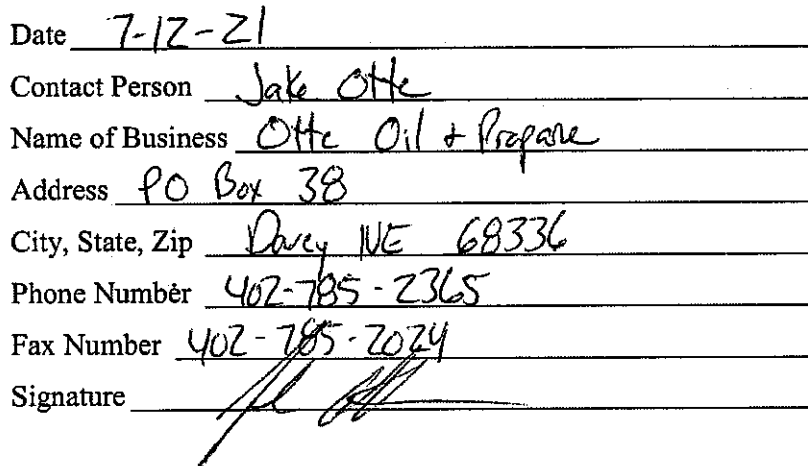 Date 7-12-21
Contact Person Jake Otte
Name of Business Otte Oil + Propane
Address PO Box 38
City, State, Zip Davey NE 68336
Phone Number 402-785-2365
Fax Number 402-785-2024
Signature